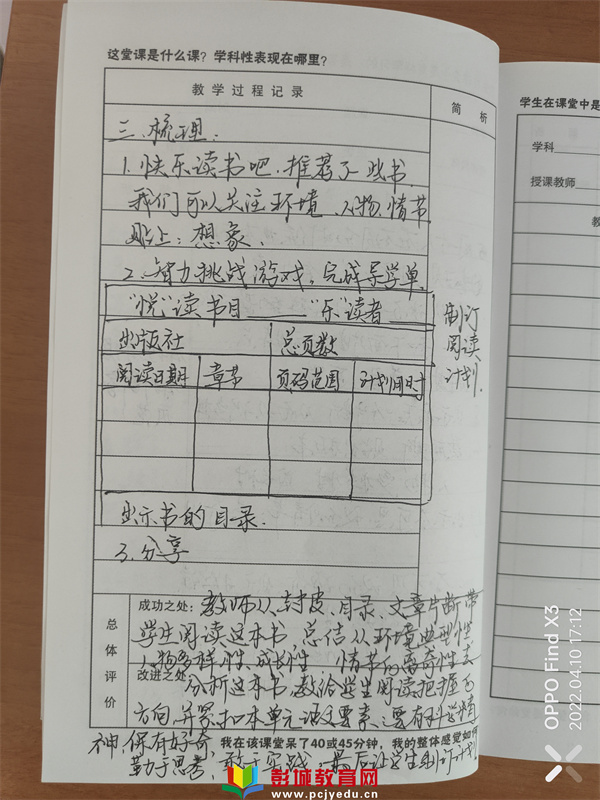 这堂课是什么课？学科性表现在哪里？
教 学 过 程 记 录
简 析
三、梳理.
1. 快乐读书吧, 推荐了 书.
我们可以关注环境、人物、情节
贴上: 想象.
2. 智力挑战游戏, 完成导学单.
"悦"读书目 "乐"读者
出版社 总页数
阅读日期 章节 页码范围 计划用时
制订
阅读
计划.
出示书的目录.
3. 分享
总体评价
成功之处: 教师从封皮、目录、文章片断带
学生阅读这本书, 总结从环境典型性
人物多样性、成长性 情节的离奇性去
改进之处: 分析这本书, 教给学生阅读把握
方向, 并紧扣本单元语文要素: 要有科学精
神, 保有好奇
我在该课堂呆了40或45分钟，我的整体感觉如何
勤于思考, 敢于实践, 最后让学生制订计划.
学生在课堂中是
学科
授课教师
教
OPPO Find X3
2022.04.10 17:12
彭城教育网
www.pcjyedu.cn